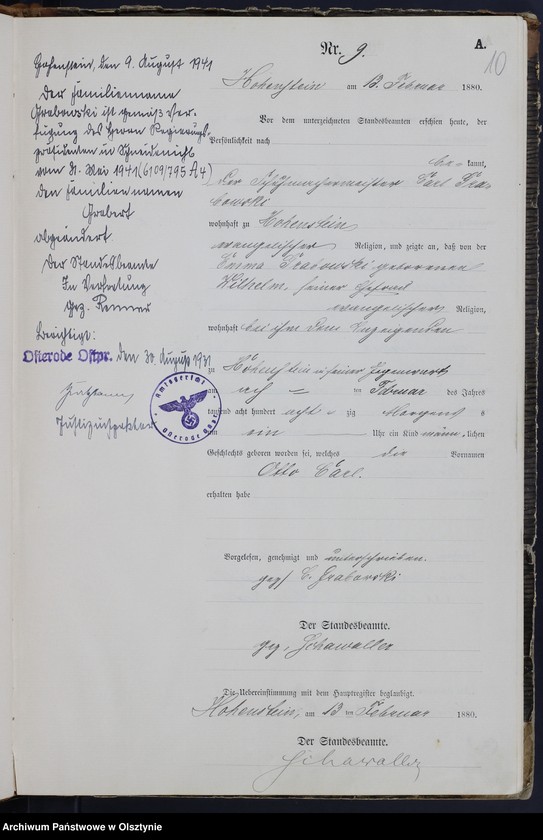 Nr. 9.
A.
10
Hohenstein am 13. Februar 1880.
Vor dem unterzeichneten Standesbeamten erschien heute, der
Persönlichkeit nach
be= kannt,
der Schuhmachermeister Carl Gra=
bowski
wohnhaft zu Hohenstein
evangelischer Religion, und zeigte an, daß von der
Emma Grabowski geborenen
Wilhelm, seiner Ehefrau
evangelischer Religion,
wohnhaft bei ihm dem Anzeigenden
zu Hohenstein in seiner Gegenwart
am Februar des Jahres
tausend acht hundert acht = zig Morgens
um ein Uhr ein Kind männ= lichen
Geschlechts geboren worden sei, welches die Vornamen
Otto Carl.
erhalten habe
Vorgelesen, genehmigt und unterschrieben.
gez/ C. Grabowski
Der Standesbeamte.
gez. Schawaller
Die Uebereinstimmung mit dem Hauptregister beglaubigt.
Hohenstein, am 13 ten Februar 1880.
Der Standesbeamte.
Schawaller
Hohenstein, den 9. August 1941
Der Familienname
Grabowski ist gemäß Ver=
fügung des Herrn Regierungs=
präsidenten in
vom 31. Mai 1941 (6109/795 A4)
den Familiennamen
Grabert
abgeändert.
Der Standesbeamte
In Vertretung
gez. Renner
Berichtigt:
Osterode Ostpr. den 30. August 1941
Justizinspektor
Amtsgericht
Archiwum Państwowe w Olsztynie